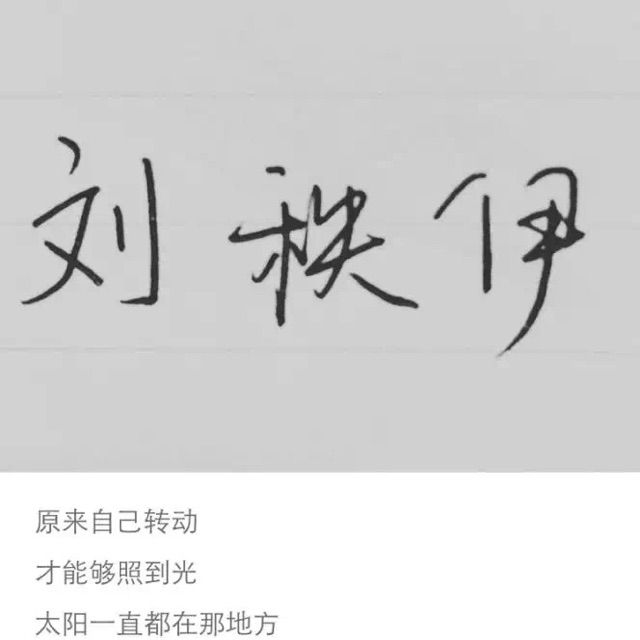 刘秩伊
原来自己转动
才能够照到光
太阳一直都在那地方